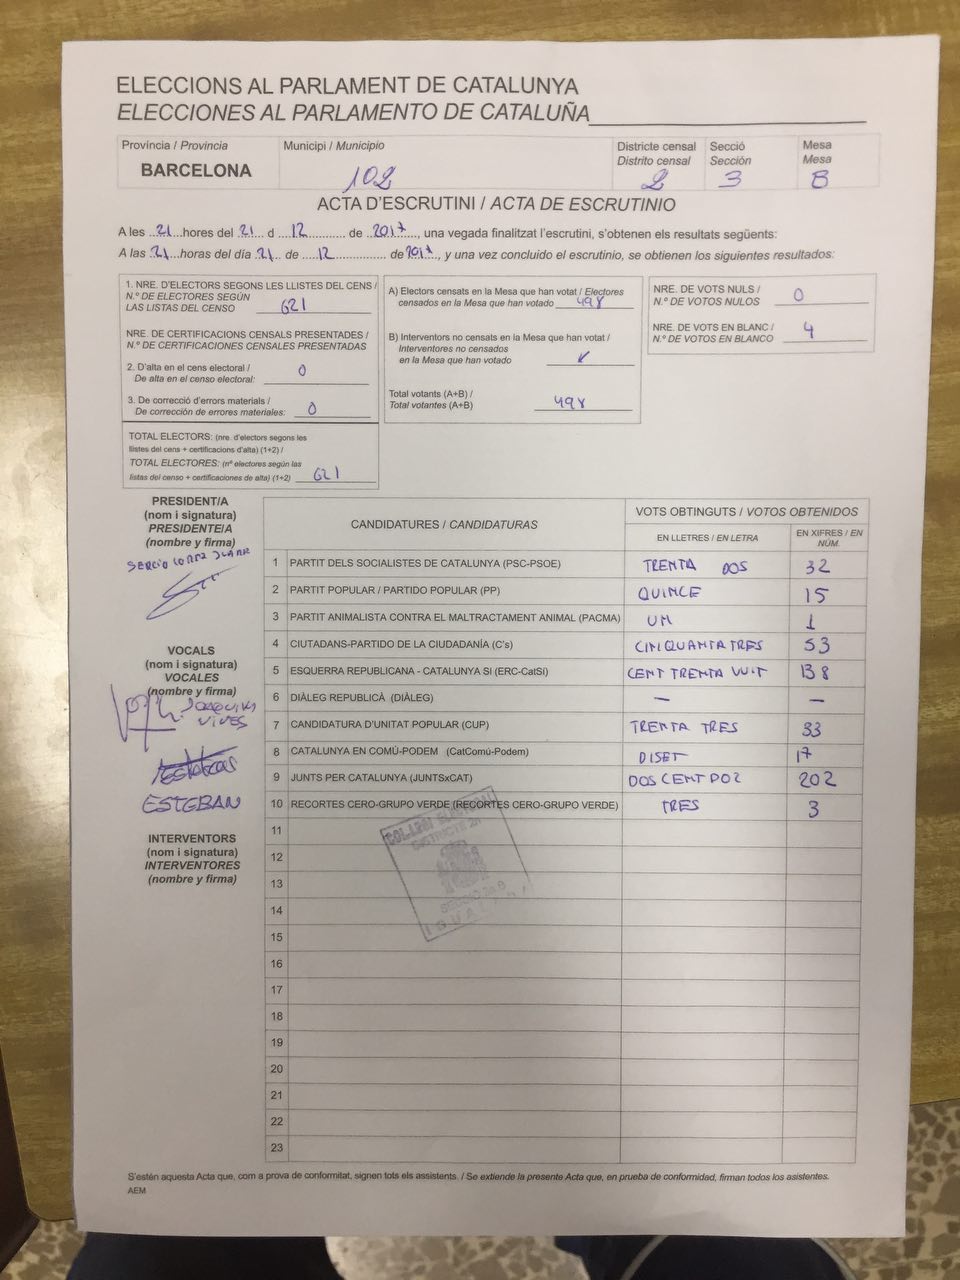 ELECCIONS AL PARLAMENT DE CATALUNYA
ELECCIONES AL PARLAMENTO DE CATALUÑA
Província / Provincia
BARCELONA
Municipi / Municipio
102
Districte censal
Distrito censal
2
Secció
Sección
3
Mesa
Mesa
B
ACTA D'ESCRUTINI / ACTA DE ESCRUTINIO
A les ..21...hores del 21... d ...12........... de ..2017...., una vegada finalitzat l'escrutini, s'obtenen els resultats següents:
A las ..21...horas del día .21.. de ....12................ de 2017.., y una vez concluido el escrutinio, se obtienen los siguientes resultados:
1. NRE. D'ELECTORS SEGONS LES LLISTES DEL CENS /
N.º DE ELECTORES SEGÚN
LAS LISTAS DEL CENSO 621
NRE. DE CERTIFICACIONS CENSALS PRESENTADES /
N.º DE CERTIFICACIONES CENSALES PRESENTADAS
2. D'alta en el cens electoral /
De alta en el censo electoral: 0
3. De correcció d'errors materials /
De corrección de errores materiales: 0
TOTAL ELECTORS: (nre. d'electors segons les
llistes del cens + certificacions d'alta) (1+2) /
TOTAL ELECTORES: (nº electores según las
listas del censo + certificaciones de alta) (1+2) 621
A) Electors censats en la Mesa que han votat / Electores
censados en la Mesa que han votado 498
B) Interventors no censats en la Mesa que han votat /
Interventores no censados
en la Mesa que han votado
Total votants (A+B) /
Total votantes (A+B) 498
NRE. DE VOTS NULS /
N.º DE VOTOS NULOS 0
NRE. DE VOTS EN BLANC /
N.º DE VOTOS EN BLANCO 4
PRESIDENT/A
(nom i signatura)
PRESIDENTE/A
(nombre y firma)
SERGIO
VOCALS
(nom i signatura)
VOCALES
(nombre y firma)
JOAQUIM
VIVES
ESTEBAN
INTERVENTORS
(nom i signatura)
INTERVENTORES
(nombre y firma)
CANDIDATURES / CANDIDATURAS
VOTS OBTINGUTS / VOTOS OBTENIDOS
EN LLETRES / EN LETRA
EN XIFRES / EN
NÚM.
1 PARTIT DELS SOCIALISTES DE CATALUNYA (PSC-PSOE) TRENTA DOS 32
2 PARTIT POPULAR / PARTIDO POPULAR (PP) QUINCE 15
3 PARTIT ANIMALISTA CONTRA EL MALTRACTAMENT ANIMAL (PACMA) UM 1
4 CIUTADANS-PARTIDO DE LA CIUDADANÍA (C's) CINQUANTA TRES 53
5 ESQUERRA REPUBLICANA - CATALUNYA SI (ERC-CatSí) CENT TRENTA VUIT 138
6 DIÀLEG REPUBLICÀ (DIÀLEG) — —
7 CANDIDATURA D'UNITAT POPULAR (CUP) TRENTA TRES 33
8 CATALUNYA EN COMÚ-PODEM (CatComú-Podem) DISET 17
9 JUNTS PER CATALUNYA (JUNTSxCAT) DOS CENT DOS 202
10 RECORTES CERO-GRUPO VERDE (RECORTES CERO-GRUPO VERDE) TRES 3
11
12
13
14
15
16
17
18
19
20
21
22
23
COL·LEGI ELECTORAL
DISTRICTE 2n
IGUALADA
S'estén aquesta Acta que, com a prova de conformitat, signen tots els assistents. / Se extiende la presente Acta que, en prueba de conformidad, firman todos los asistentes.
AEM